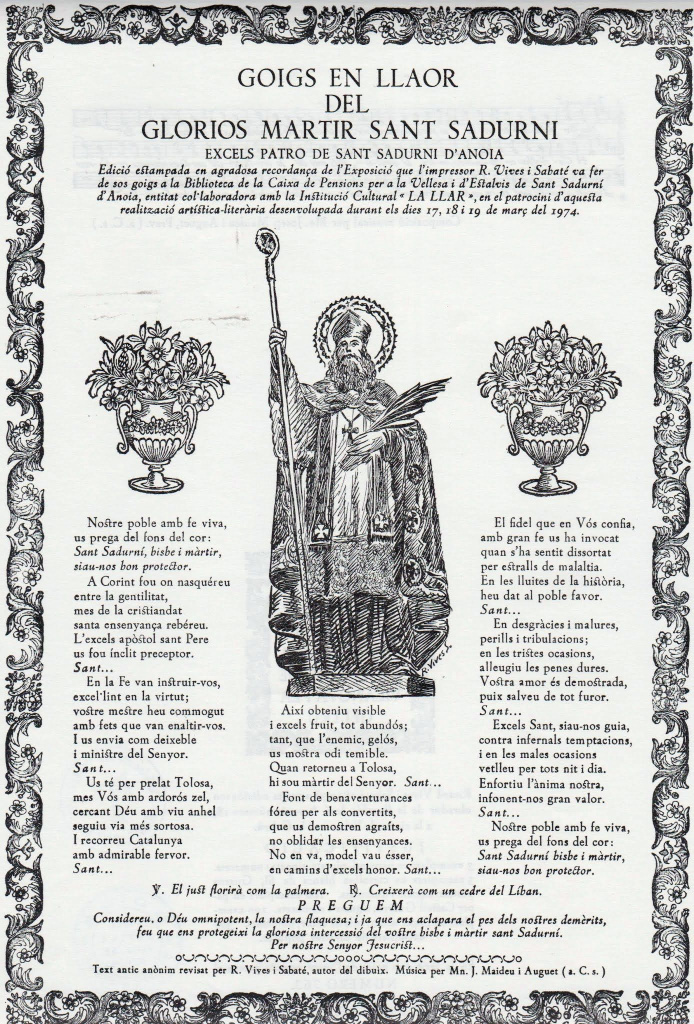 GOIGS EN LLAOR
DEL
GLORIOS MARTIR SANT SADURNI
EXCELS PATRO DE SANT SADURNI D'ANOIA
Edició estampada en agradosa recordança de l'Exposició que l'impressor R. Vives i Sabaté va fer
de sos goigs a la Biblioteca de la Caixa de Pensions per a la Vellesa i d'Estalvis de Sant Sadurní
d'Anoia, entitat col·laboradora amb la Institució Cultural « LA LLAR », en el patrocini d'aquesta
realització artística-literària desenvolupada durant els dies 17, 18 i 19 de març del 1974.
Nostre poble amb fe viva,
us prega del fons del cor:
Sant Sadurní, bisbe i màrtir,
siau-nos bon protector.
A Corint fou on nasquéreu
entre la gentilitat,
mes de la cristiandat
santa ensenyança rebéreu.
L'excels apòstol sant Pere
us fou ínclit preceptor.
Sant...
En la Fe van instruir-vos,
excel·lint en la virtut;
vostre mestre heu commogut
amb fets que van enaltir-vos.
I us envia com deixeble
i ministre del Senyor.
Sant...
Us té per prelat Tolosa,
mes Vós amb ardorós zel,
cercant Déu amb viu anhel
seguiu via més sortosa.
I recorreu Catalunya
amb admirable fervor.
Sant...
R. VIVES S.
Així obteniu visible
i excels fruit, tot abundós;
tant, que l'enemic, gelós,
us mostra odi temible.
Quan retorneu a Tolosa,
hi sou màrtir del Senyor. Sant...
Font de benaventurances
fóreu per als convertits,
que us demostren agraïts,
no oblidar les ensenyances.
No en va, model vau ésser,
en camins d'excels honor. Sant...
El fidel que en Vós confia,
amb gran fe us ha invocat
quan s'ha sentit dissortat
per estralls de malaltia.
En les lluites de la història,
heu dat al poble favor.
Sant...
En desgràcies i malures,
perills i tribulacions;
en les tristes ocasions,
alleugiu les penes dures.
Vostra amor és demostrada,
puix salveu de tot furor.
Sant...
Excels Sant, siau-nos guia,
contra infernals temptacions,
i en les males ocasions
vetlleu per tots nit i dia.
Enfortiu l'ànima nostra,
infonent-nos gran valor.
Sant...
Nostre poble amb fe viva,
us prega del fons del cor:
Sant Sadurní bisbe i màrtir,
siau-nos bon protector.
℣. El just florirà com la palmera. ℟. Creixerà com un cedre del Líban.
PREGUEM
Considereu, o Déu omnipotent, la nostra flaquesa; i ja que ens aclapara el pes dels nostres demèrits,
feu que ens protegeixi la gloriosa intercessió del vostre bisbe i màrtir sant Sadurní.
Per nostre Senyor Jesucrist...
Text antic anònim revisat per R. Vives i Sabaté, autor del dibuix. Música per Mn. J. Maideu i Auguet ( a. C. s. )